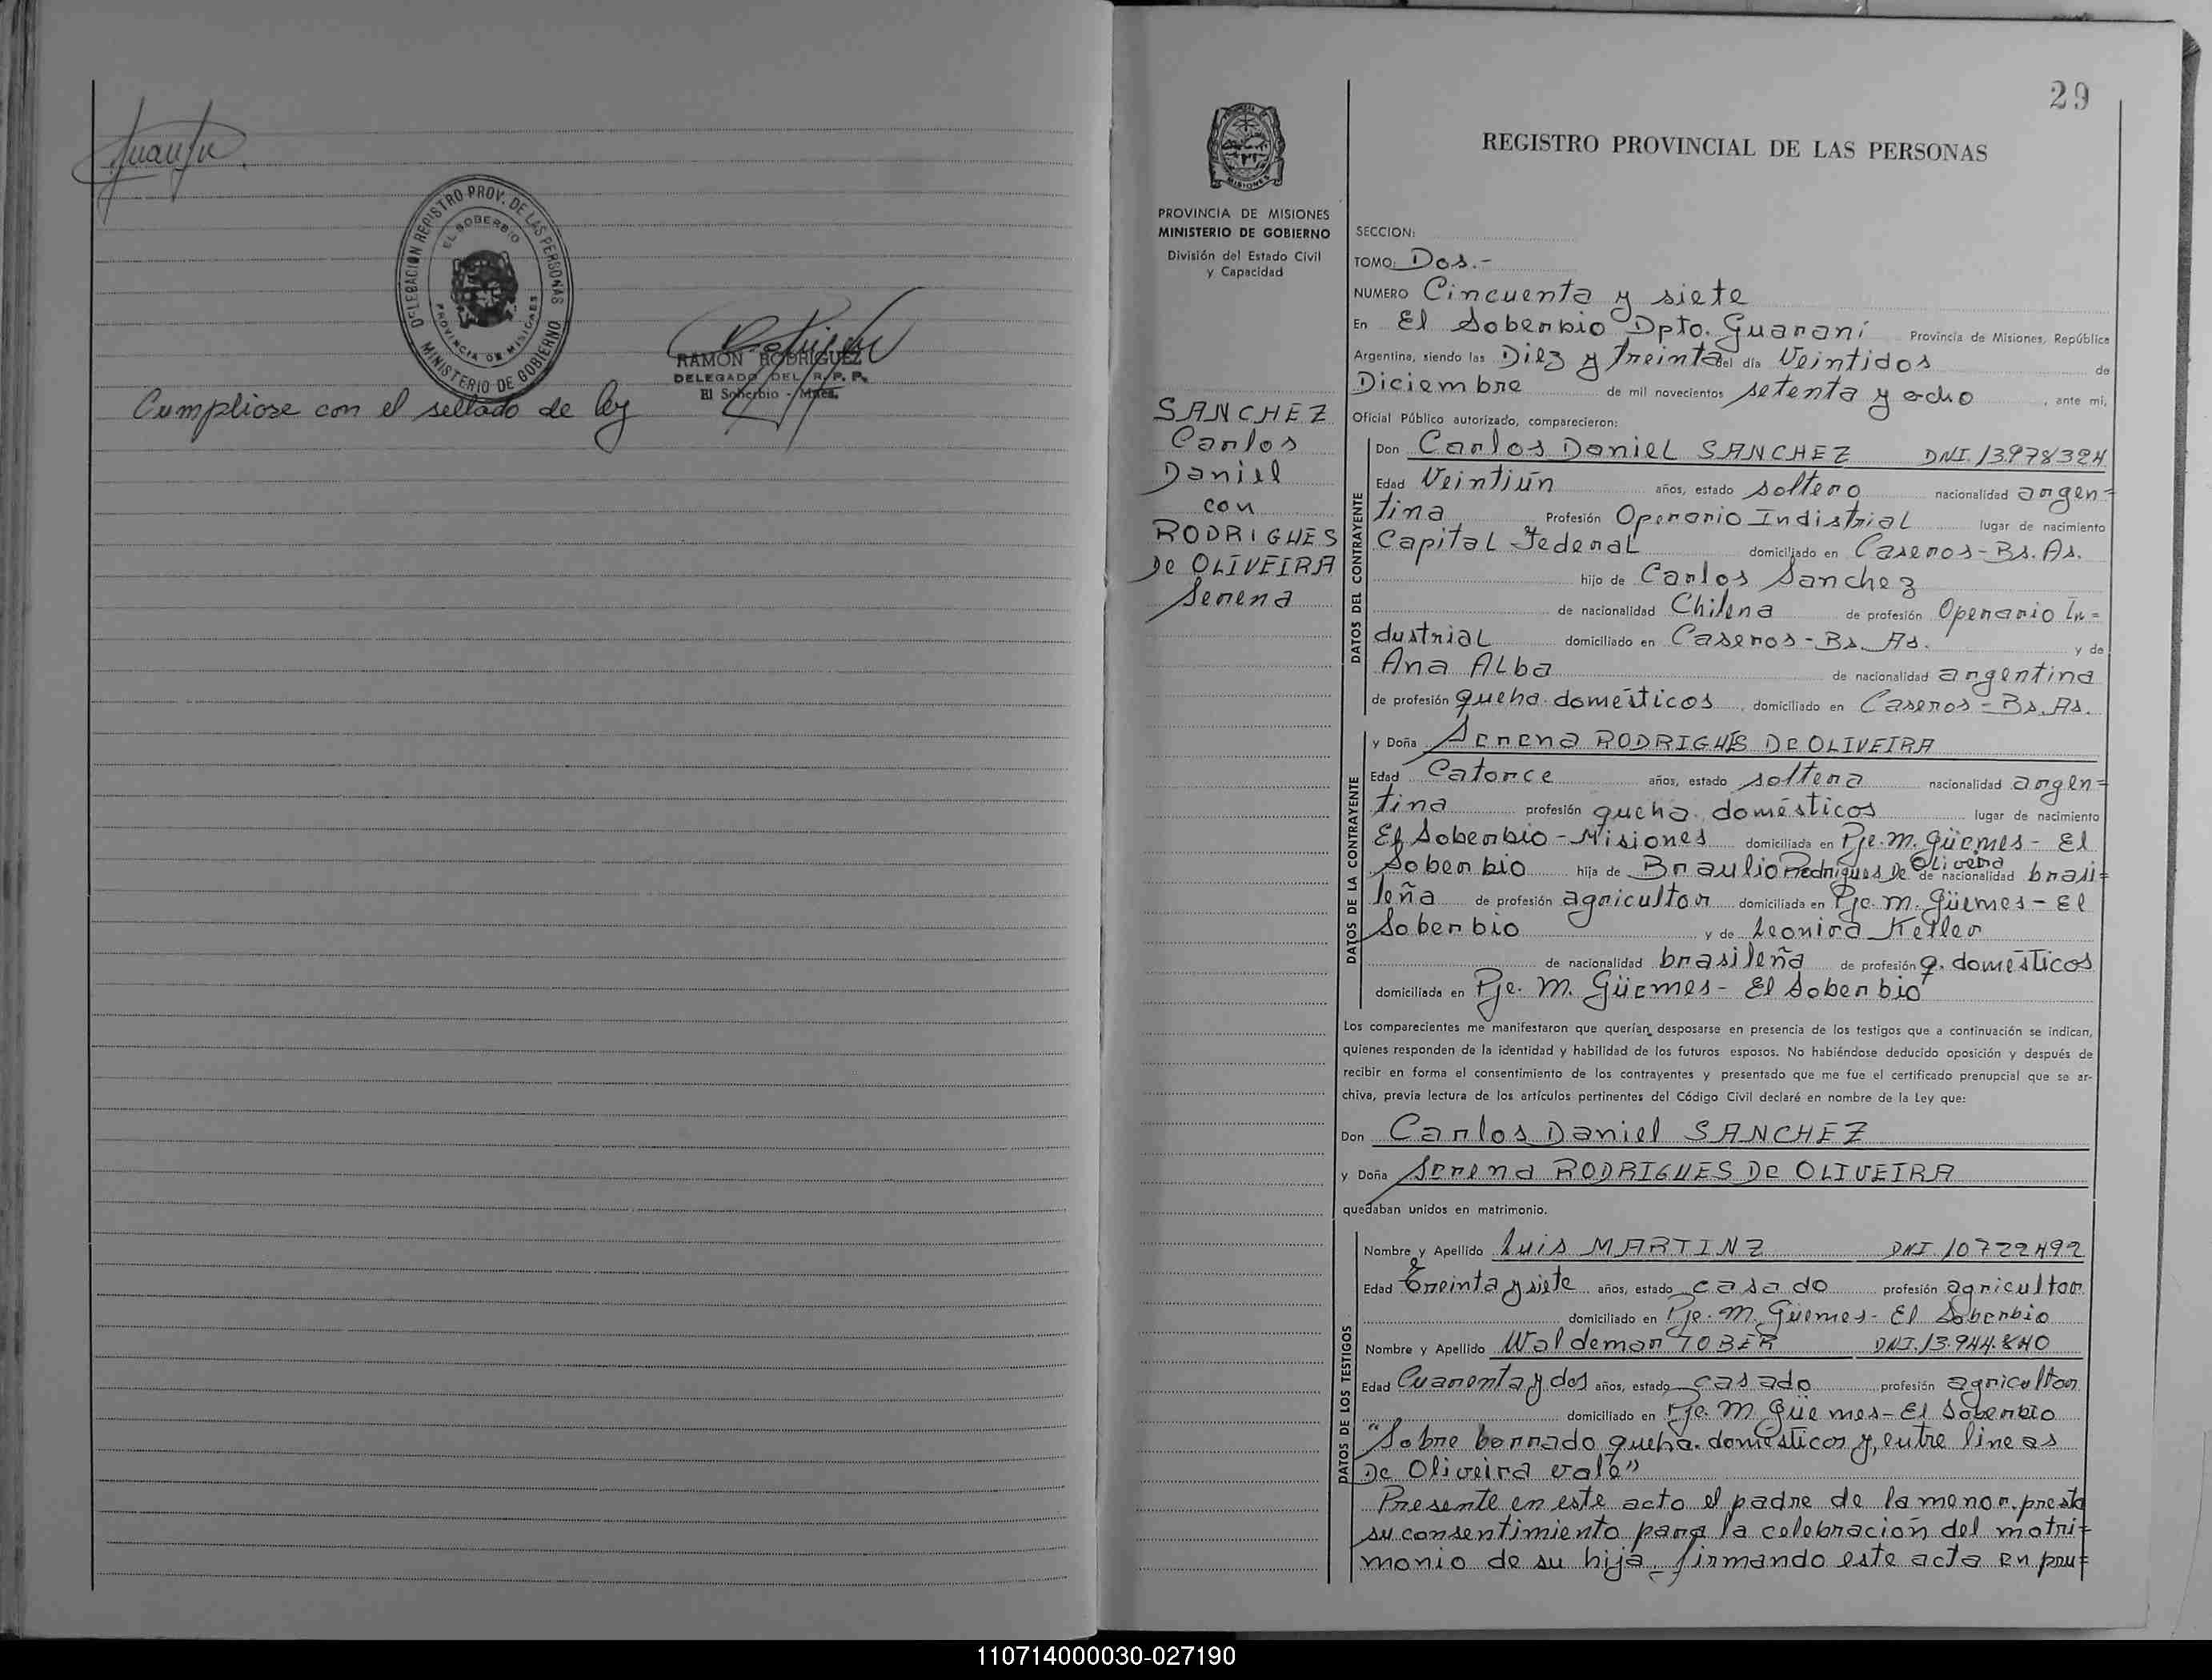 DELEGACION REGISTRO PROV. DE LAS PERSONAS
EL SOBERBIO
PROVINCIA DE MISIONES
MINISTERIO DE GOBIERNO
RAMON RODRIGUEZ
DELEGADO DEL R. P. P.
El Soberbio - Mnes.
Cumpliose con el sellado de ley
29
MISIONES
PROVINCIA DE MISIONES
MINISTERIO DE GOBIERNO
División del Estado Civil
y Capacidad
SANCHEZ
Carlos
Daniel
con
RODRIGUES
De OLIVEIRA
Serena
REGISTRO PROVINCIAL DE LAS PERSONAS
SECCION:
TOMO: Dos.-
NUMERO Cincuenta y siete
En El Soberbio Dpto. Guaraní Provincia de Misiones, República
Argentina, siendo las Diez y treinta del día Veintidos de
Diciembre de mil novecientos setenta y ocho, ante mí,
Oficial Público autorizado, comparecieron:
DATOS DEL CONTRAYENTE
Don Carlos Daniel SANCHEZ DNI.13978324
Edad Veintiún años, estado soltero nacionalidad argen=
tina Profesión Operario Indistrial lugar de nacimiento
Capital Federal domiciliado en Caseros-Bs.As.
hijo de Carlos Sanchez
de nacionalidad Chilena de profesión Operario In=
dustrial domiciliado en Caseros-Bs. As. y de
Ana Alba de nacionalidad argentina
de profesión queha. domésticos, domiciliado en Caseros-Bs. As.
DATOS DE LA CONTRAYENTE
y Doña Serena RODRIGUES De OLIVEIRA
Edad Catorce años, estado soltera nacionalidad argen=
tina profesión queha. domésticos lugar de nacimiento
El Soberbio-Misiones domiciliada en Pje. M. Güemes- El
Soberbio hija de Braulio Rodrigues De Oliveira de nacionalidad brasi=
leña de profesión agricultor domiciliada en Pje. M. Güemes- El
Soberbio y de Leonira Keller
de nacionalidad brasileña de profesión q. domésticos
domiciliada en Pje. M. Güemes- El Soberbio
Los comparecientes me manifestaron que querían desposarse en presencia de los testigos que a continuación se indican,
quienes responden de la identidad y habilidad de los futuros esposos. No habiéndose deducido oposición y después de
recibir en forma el consentimiento de los contrayentes y presentado que me fue el certificado prenupcial que se ar-
chiva, previa lectura de los artículos pertinentes del Código Civil declaré en nombre de la Ley que:
Don Carlos Daniel SANCHEZ
y Doña Serena RODRIGUES De OLIVEIRA
quedaban unidos en matrimonio.
DATOS DE LOS TESTIGOS
Nombre y Apellido Luis MARTINZ DNI.10722492
Edad treinta y siete años, estado casado profesión agricultor
domiciliado en Pje. M. Güemes- El Soberbio
Nombre y Apellido Waldemar TOBER DNI.13.944.840
Edad Cuarenta y dos años, estado casado profesión agricultor
domiciliado en Pje. M Güemes-El Soberbio
"Sobre borrado queha. domésticos y, entre lineas
De Oliveira vale"
Presente en este acto el padre de la menor. presta
su consentimiento para la celebración del matri=
monio de su hija, firmando este acta en pru=
110714000030-027190